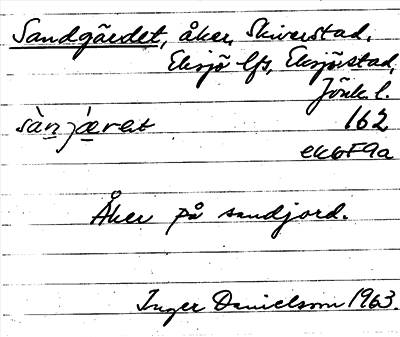 Sandgärdet, åker, Skiverstad,
Eksjö lfs, Eksjö stad,
Jönk. l.
sàn jæ̀rət 162
ek6F9a
Åker på sandjord.
Inger Danielsson 1963.